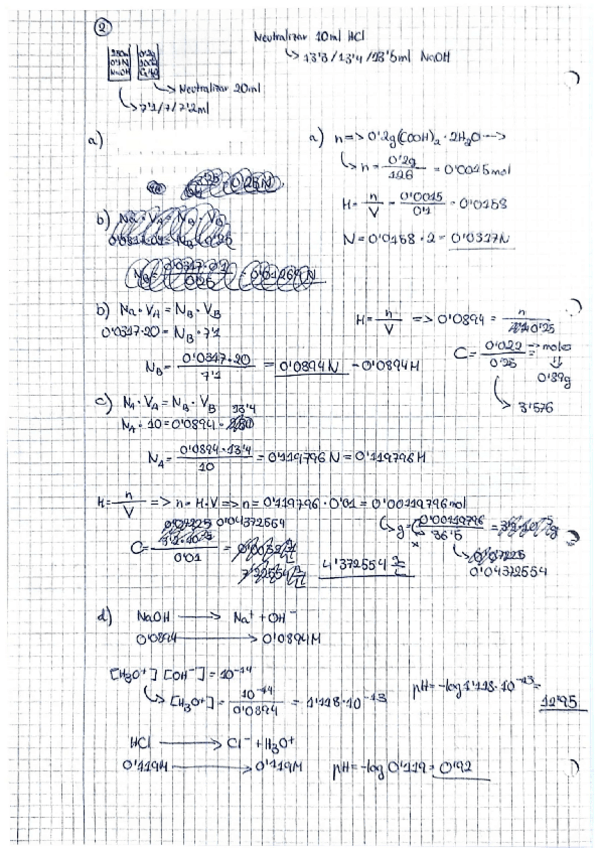 ②
Neutralizar 10ml HCl
↳ 13'3/13'4/13'5ml NaOH
250ml
0'1N
NaOH
0'2g
→ Neutralizar 20ml
↳ 7'1/7/7'2ml
a)
a) n => 0'2g (COOH)₂ · 2H₂O →
↳ n = 0'2g / 126 = 0'0015mol
M = n / V = 0'0015 / 0'1 = 0'0158
N = 0'0158 · 2 = 0'0317N
b) Na · VA = NB · VB
b) Na · VA = NB · VB
0'0317 · 20 = NB · 7'1
NB = 0'0317 · 20 / 7'1 = 0'0894N - 0'0894M
M = n / V => 0'0894 = n / 0'25
C = 0'022 / 0'25 = → moles
⇓
0'89g
↳ 3'576
c) NA · VA = NB · VB
NA · 10 = 0'0894 · 13'4
NA = 0'0894 · 13'4 / 10 = 0'119796 N = 0'119796M
M = n / V => n = M · V => n = 0'119796 · 0'01 = 0'00119796mol
↳ g = 0'00119796 / 36'5
0'04372554
C = 0'04372554 / 0'01 = 4'372554 g/L
d) NaOH → Na⁺ + OH⁻
0'0894 → 0'0894M
[H₃O⁺] [OH⁻] = 10⁻¹⁴
↳ [H₃O⁺] = 10⁻¹⁴ / 0'0894 = 1'118 · 10⁻¹³
pH = -log 1'118 · 10⁻¹³ = 12'95
HCl → Cl⁻ + H₃O⁺
0'119M → 0'119M
pH = -log 0'119 = 0'92